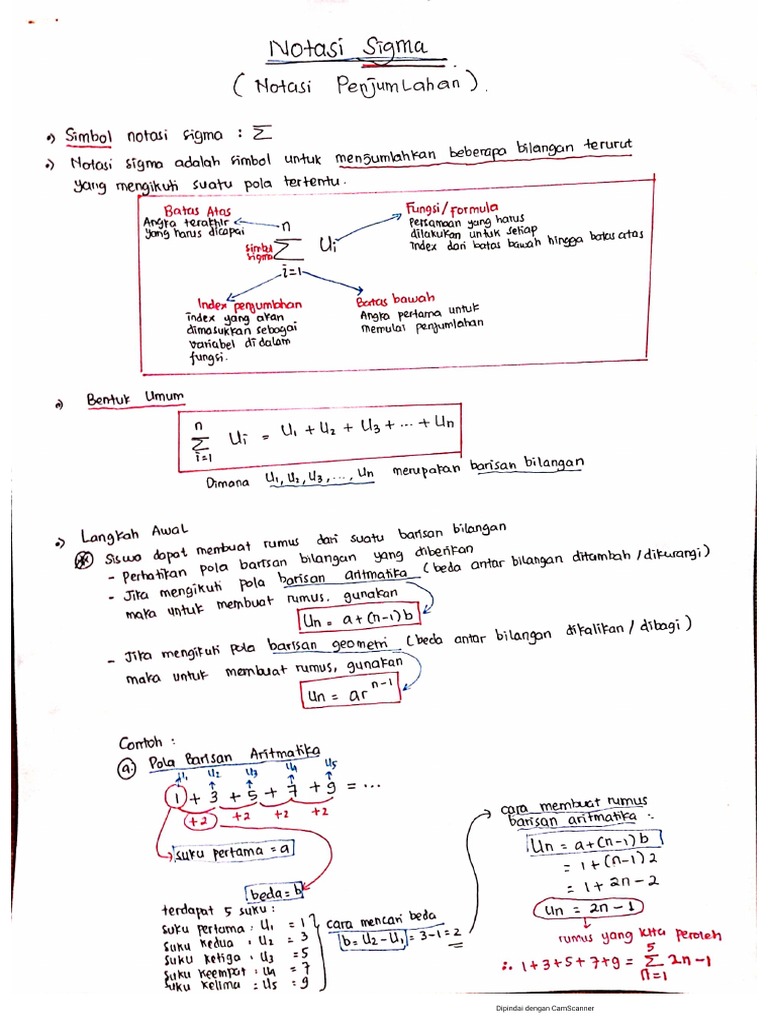 Notasi Sigma
(Notasi Penjumlahan).
•) Simbol notasi sigma : Σ
•) Notasi sigma adalah simbol untuk menjumlahkan beberapa bilangan terurut
yang mengikuti suatu pola tertentu.
Batas Atas
Angka terakhir
yang harus dicapai
n
simbol
sigma
Σ Ui
i=1
Fungsi/Formula
Persamaan yang harus
dilakukan untuk setiap
Index dari batas bawah hingga batas atas
Index penjumlahan
index yang akan
dimasukkan sebagai
variabel di dalam
fungsi.
Batas bawah
Angka pertama untuk
memulai penjumlahan
•) Bentuk Umum
n
Σ Ui = U1 + U2 + U3 + ... + Un
i=1
Dimana U1, U2, U3, ..., Un merupakan barisan bilangan
•) Langkah Awal
* Siswa dapat membuat rumus dari suatu barisan bilangan
- Perhatikan pola barisan bilangan yang diberikan
- Jika mengikuti pola barisan aritmatika (beda antar bilangan ditambah/dikurangi)
maka untuk membuat rumus. gunakan
Un = a+(n-1)b
- Jika mengikuti pola barisan geometri (beda antar bilangan dikalikan/dibagi)
maka untuk membuat rumus, gunakan
Un = ar^n-1
Contoh :
a. Pola Barisan Aritmatika
U1 U2 U3 U4 U5
1 + 3 + 5 + 7 + 9 = ...
+2 +2 +2 +2
suku pertama = a
beda = b
terdapat 5 suku :
suku pertama : U1 = 1
suku kedua : U2 = 3
suku ketiga : U3 = 5
suku keempat : U4 = 7
suku kelima : U5 = 9
cara mencari beda
b = U2 - U1 = 3-1 = 2
cara membuat rumus
barisan aritmatika :
Un = a+(n-1)b
= 1+(n-1)2
= 1 + 2n - 2
Un = 2n - 1
rumus yang kita peroleh
5
∴ 1+3+5+7+9 = Σ 2n-1
n=1
Dipindai dengan CamScanner